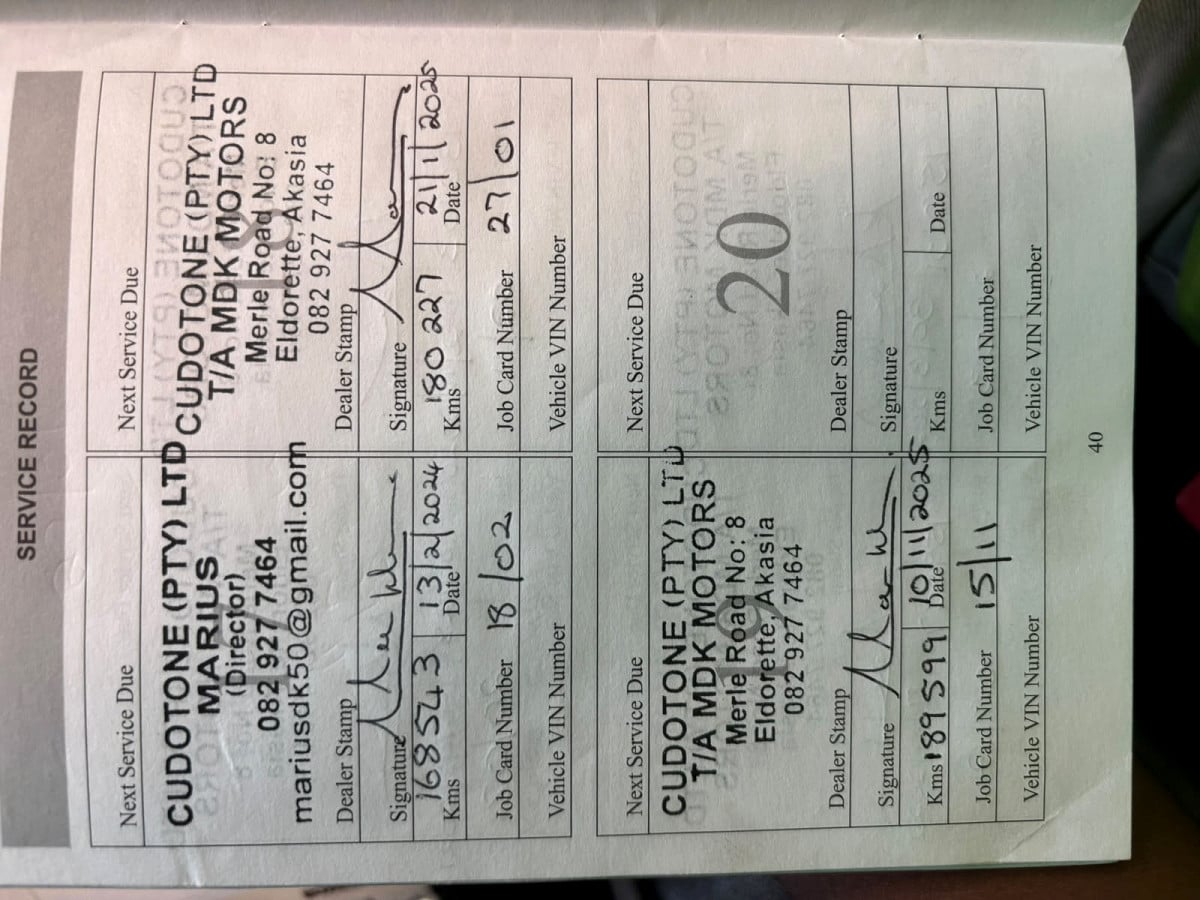 SERVICE RECORD
Next Service Due
CUDOTONE (PTY) LTD
MARIUS
(Director)
082 927 7464
mariusdk50@gmail.com
Dealer Stamp
Signature
168543 13/2/2024
Kms Date
Job Card Number 18/02
Vehicle VIN Number
Next Service Due
CUDOTONE (PTY) LTD
T/A MDK MOTORS
Merle Road No: 8
18
Eldorette, Akasia
082 927 7464
Dealer Stamp
Signature
180227 21/1/2025
Kms Date
Job Card Number 27/01
Vehicle VIN Number
Next Service Due
CUDOTONE (PTY) LTD
T/A MDK MOTORS
Merle Road No: 8
19
Eldorette, Akasia
082 927 7464
Dealer Stamp
Signature
Kms 189599 Date 10/11/2025
Job Card Number 15/11
Vehicle VIN Number
Next Service Due
20
Dealer Stamp
Signature
Kms Date
Job Card Number
Vehicle VIN Number
40